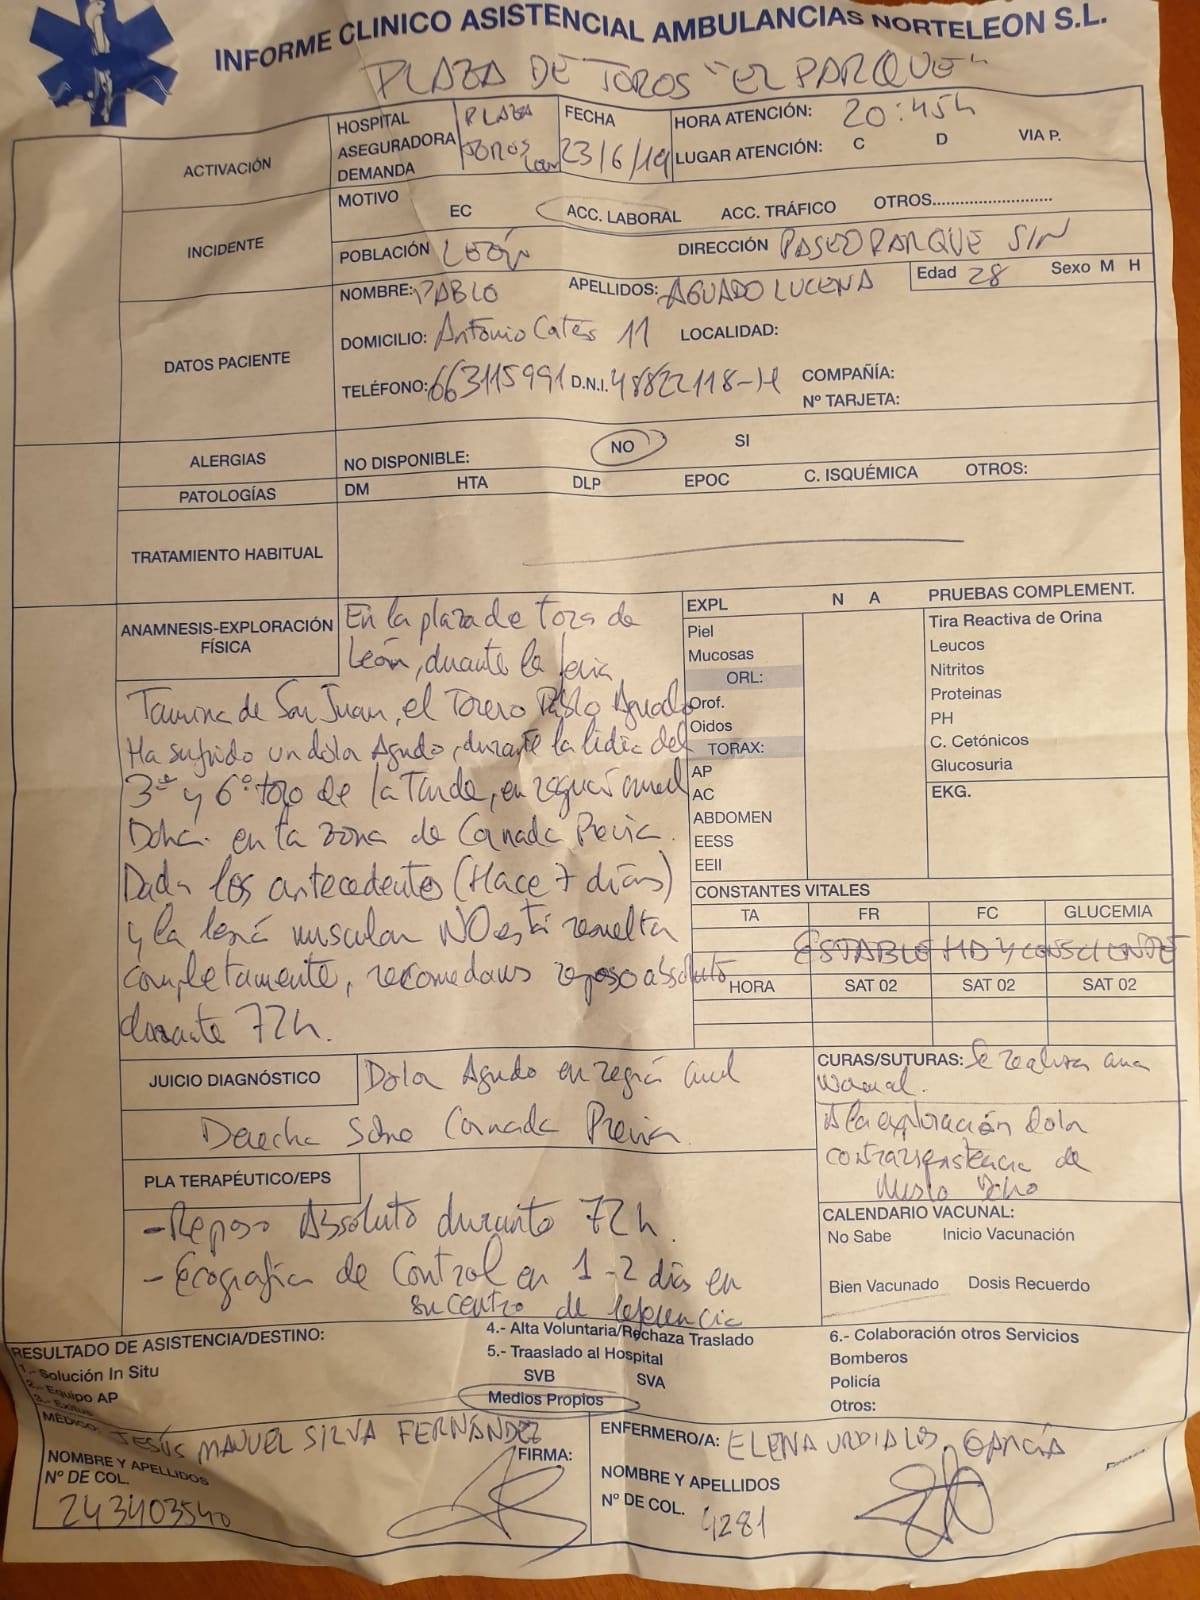 INFORME CLINICO ASISTENCIAL AMBULANCIAS NORTELEON S.L.
PLAZA DE TOROS "EL PARQUE"
ACTIVACIÓN
HOSPITAL
ASEGURADORA
DEMANDA
PLAZA
TOROS
FECHA
23/6/19
HORA ATENCIÓN: 20:45h
LUGAR ATENCIÓN: C D VIA P.
INCIDENTE
MOTIVO
EC ACC. LABORAL ACC. TRÁFICO OTROS............................
POBLACIÓN LEÓN DIRECCIÓN PASEO PARQUE S/N
DATOS PACIENTE
NOMBRE: PABLO APELLIDOS: AGUADO LUCENA Edad 28 Sexo M H
DOMICILIO: Antonio 11 LOCALIDAD:
TELÉFONO: 663115991 D.N.I. 48822118-H COMPAÑÍA:
Nº TARJETA:
ALERGIAS
NO DISPONIBLE: NO SI
PATOLOGÍAS
DM HTA DLP EPOC C. ISQUÉMICA OTROS:
TRATAMIENTO HABITUAL
ANAMNESIS-EXPLORACIÓN
FÍSICA
En la plaza de toros de
León, durante la feria
Taurina de San Juan, el Torero Pablo Aguado
Ha sufrido un dolor Agudo, durante la lidia del
3º y 6º toro de la Tarde, en región
en la zona de Cornada Previa.
Dada los antecedentes (Hace 7 días)
y la lesión muscular NO está resuelta
completamente, recomedamos reposo absoluto
durante 72h.
EXPL N A
Piel
Mucosas
ORL:
Orof.
Oidos
TORAX:
AP
AC
ABDOMEN
EESS
EEII
PRUEBAS COMPLEMENT.
Tira Reactiva de Orina
Leucos
Nitritos
Proteinas
PH
C. Cetónicos
Glucosuria
EKG.
CONSTANTES VITALES
TA FR FC GLUCEMIA
ESTABLE HD Y CONSCIENTE
HORA SAT 02 SAT 02 SAT 02
JUICIO DIAGNÓSTICO
Dolor Agudo en región
Derecha Sobre Cornada Previa.
CURAS/SUTURAS: Se realiza cura
A la exploración dolor
contraresistencia de
Muslo Dcho
PLA TERAPÉUTICO/EPS
- Reposo Absoluto durante 72h.
- Ecografia de Control en 1-2 días en
su centro de referencia
CALENDARIO VACUNAL:
No Sabe Inicio Vacunación
Bien Vacunado Dosis Recuerdo
RESULTADO DE ASISTENCIA/DESTINO:
1.- Solución In Situ
2.- Equipo AP
3.- Exitus
4.- Alta Voluntaria/Rechaza Traslado
5.- Traaslado al Hospital
SVB SVA
Medios Propios
6.- Colaboración otros Servicios
Bomberos
Policía
Otros:
MÉDICO: JESÚS MANUEL SILVA FERNÁNDEZ
NOMBRE Y APELLIDOS
Nº DE COL.
243403540
FIRMA:
ENFERMERO/A: ELENA URDIALES GARCÍA
NOMBRE Y APELLIDOS
Nº DE COL.
4281